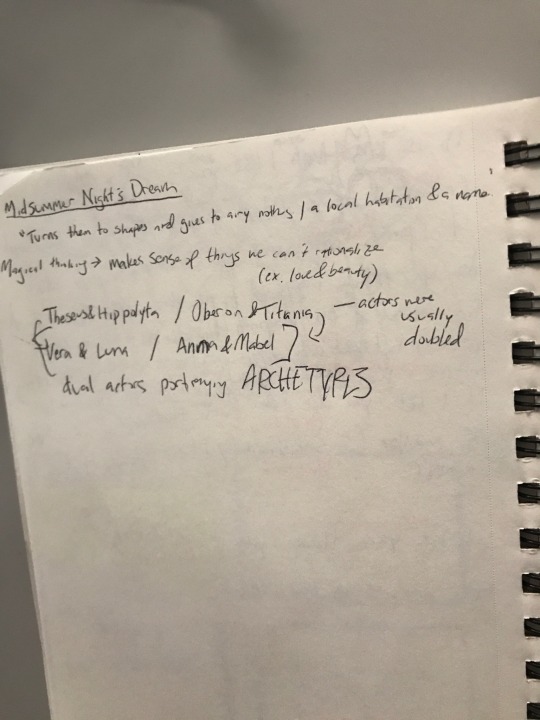 Midsummer Night's Dream
"Turns them to shapes and gives to airy nothing / a local habitation & a name"
Magical thinking → makes sense of things we can't rationalize
(ex. love & beauty)
Theseus & Hippolyta / Oberon & Titania — actors were
usually
doubled
Vera & Luna / Anma & Mabel
dual actors portraying ARCHETYPES